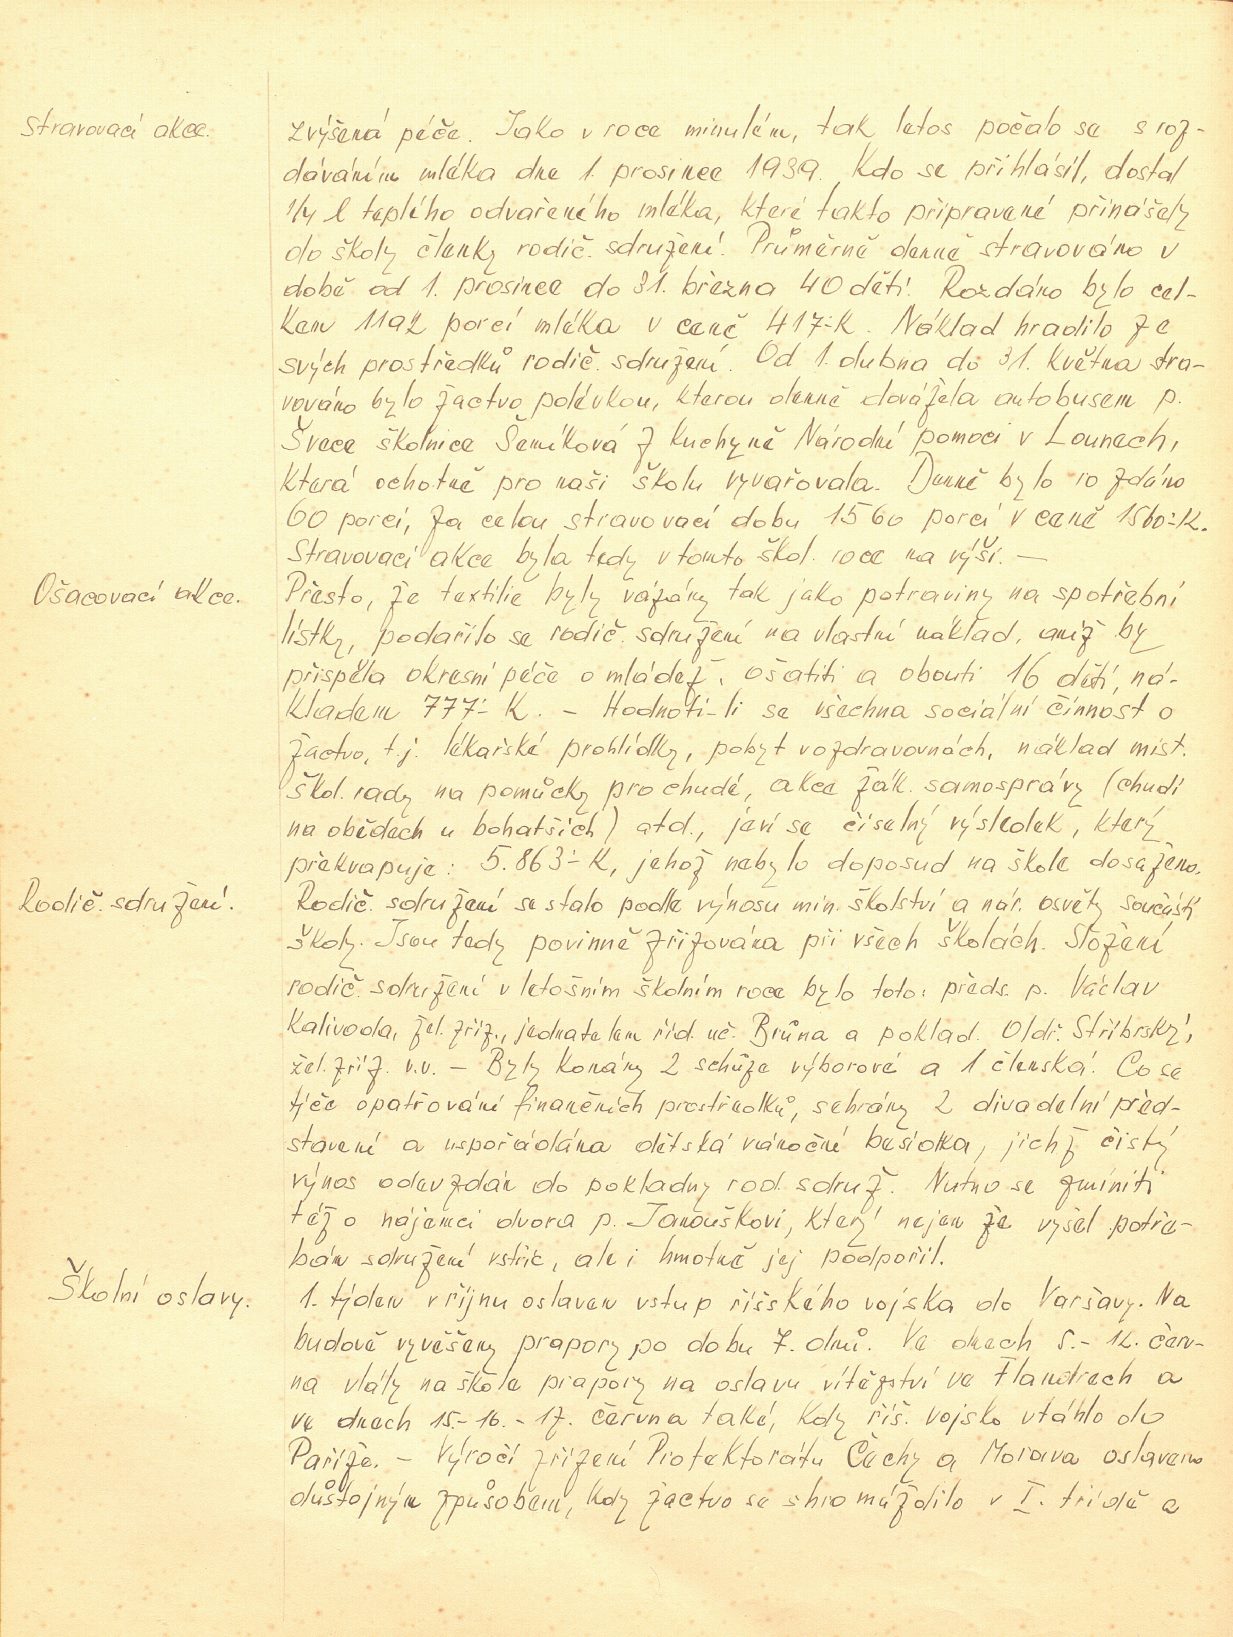 Stravovací akce.
zvýšená péče. Jako v roce minulém, tak letos počalo se s roz-
dáváním mléka dne 1. prosince 1939. Kdo se přihlásil, dostal
1/4 l teplého odvařeného mléka, které takto připravené přinášely
do školy členky rodič. sdružení. Průměrně denně stravováno v
době od 1. prosince do 31. března 40 dětí. Rozdáno bylo cel-
kem 1192 porcí mléka v ceně 417·-K. Náklad hradilo ze
svých prostředků rodič. sdružení. Od 1. dubna do 31. května stra-
vováno bylo žactvo polévkou, kterou denně dovážela autobusem p.
Švece školnice Šemíková z kuchyně Národní pomoci v Lounech,
která ochotně pro naši školu vyvařovala. Denně bylo rozdáno
60 porcí, za celou stravovací dobu 1560 porcí v ceně 1560·-K.
Stravovací akce byla tedy v tomto škol. roce na výši. —
Ošacovací akce.
Přesto, že textilie byly vázány tak jako potraviny na spotřební
lístky, podařilo se rodič. sdružení na vlastní náklad, aniž by
přispěla okresní péče o mládež, ošatiti a obouti 16 dětí, ná-
kladem 777·- K. – Hodnotí-li se všechna sociální činnost o
žactvo, t.j. lékařské prohlídky, pobyt v ozdravovnách, náklad míst.
škol. rady na pomůcky pro chudé, akce žák. samosprávy (chudí
na obědech u bohatších) atd., jeví se číselný výsledek, který
překvapuje: 5.863·- K, jehož nebylo doposud na škole dosaženo.
Rodič. sdružení.
Rodič. sdružení se stalo podle výnosu min. školství a nár. osvěty součástí
školy. Jsou tedy povinně zřizována při všech školách. Složení
rodič. sdružení v letošním školním roce bylo toto: předs. p. Václav
Kalivoda, žel. zříz., jednatelem říd. uč. Brůna a poklad. Oldř. Stříbrský,
žel. zříz. v.v. – Byly konány 2 schůze výborové a 1 členská. Co se
týče opatřování finančních prostředků, sehrány 2 divadelní před-
stavení a uspořádána dětská vánoční besídka, jichž čistý
výnos odevzdán do pokladny rod. sdruž. Nutno se zmíniti
též o nájemci dvora p. Janouškovi, který nejen že vyšel potře-
bám sdružení vstříc, ale i hmotně jej podpořil.
Školní oslavy.
1. týden v říjnu oslaven vstup říšského vojska do Varšavy. Na
budově vyvěšeny prapory po dobu 7. dnů. Ve dnech 5.- 12. červ-
na vlály na škole prapory na oslavu vítězství ve Flandrech a
ve dnech 15.- 16. - 17. června také, kdy říš. vojsko vtáhlo do
Paříže. – Výročí zřízení Protektorátu Čechy a Morava oslaveno
důstojným způsobem, kdy žactvo se shromáždilo v I. třídě a